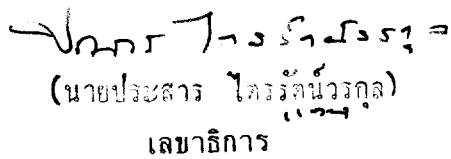 (นายประสาร ไตรรัตน์วรกุล)
เลขาธิการ